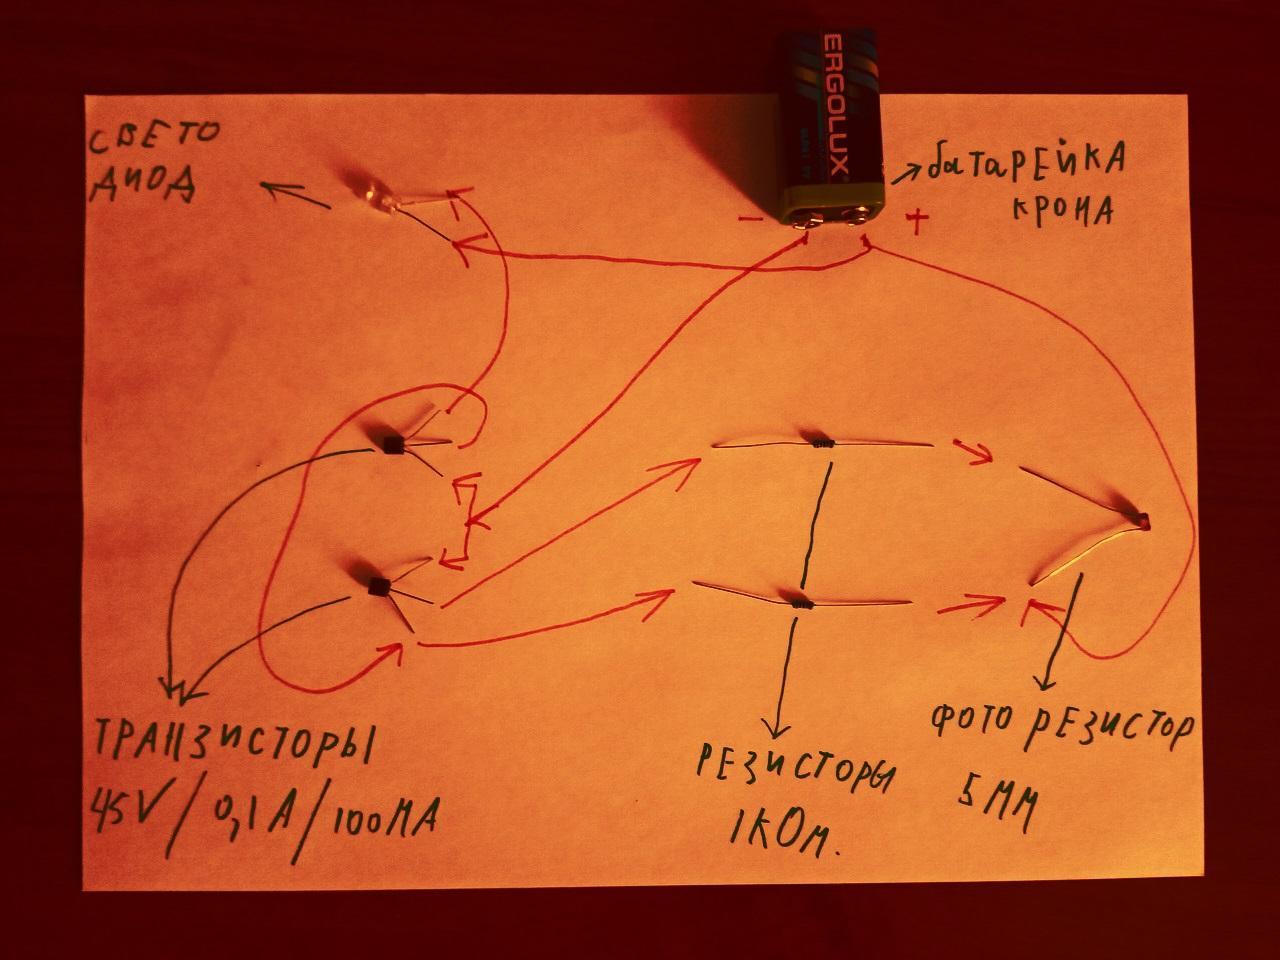 ERGOLUX
СВЕТО
ДИОД
батарЕйКА
КРОНА
-
+
ТРАНЗИСТОРЫ
45V/0,1А/100МА
РЕЗИСТОРЫ
1КОм.
ФОТО РЕЗИСТОР
5ММ